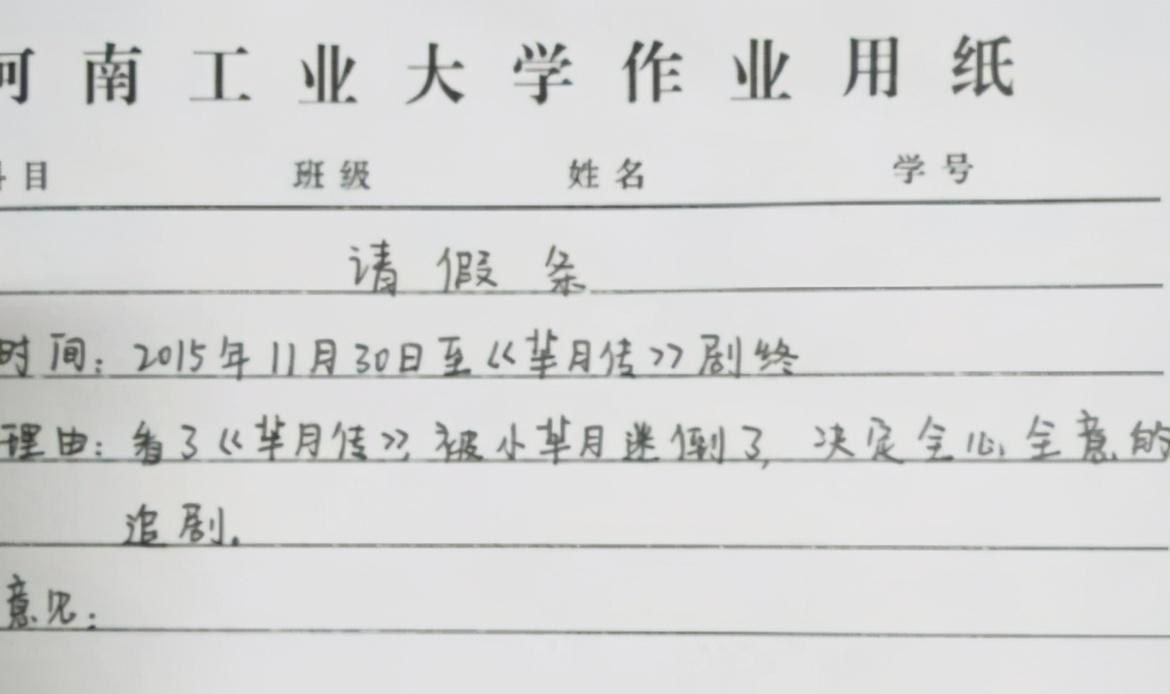 河南工业大学作业用纸
科目 班级 姓名 学号
请假条
时间：2015年11月30日至《芈月传》剧终
理由：看了《芈月传》，被小芈月迷倒了，决定全心全意的
追剧．
意见：